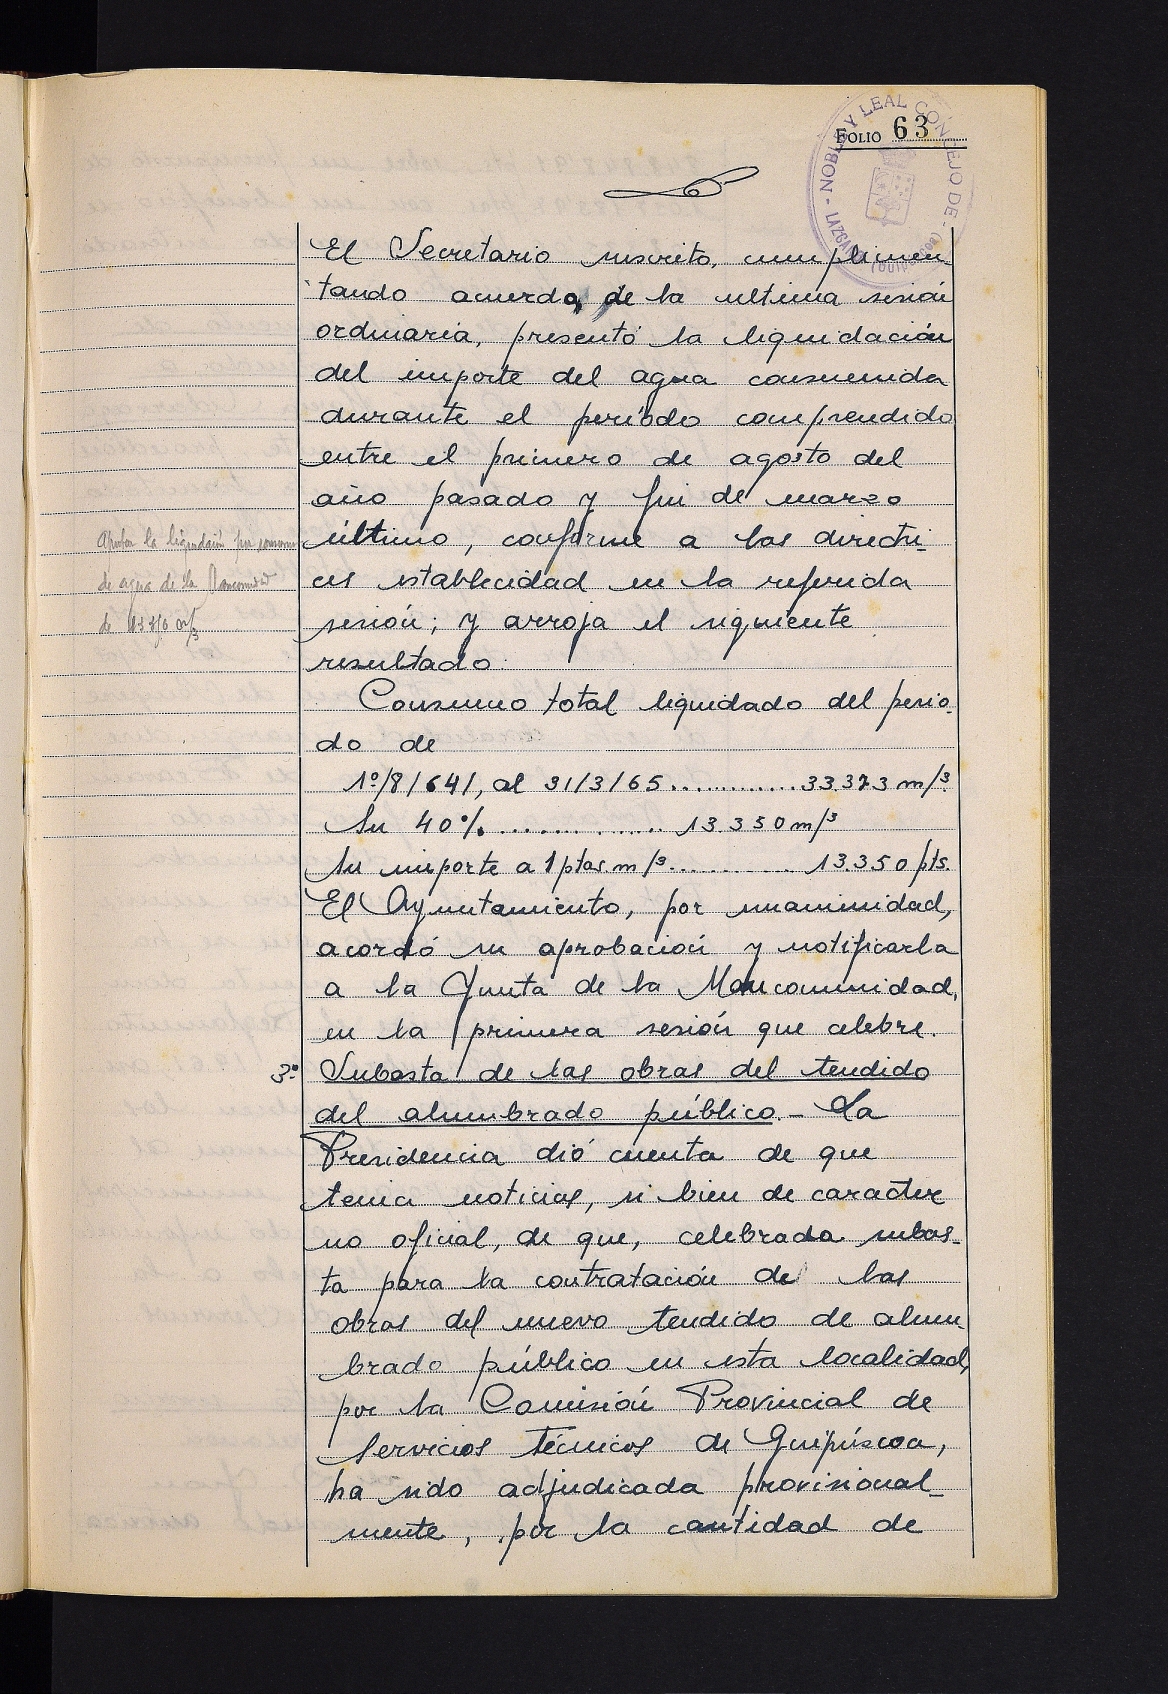 FOLIO 63
NOBLE Y LEAL CONCEJO DE - LAZCANO (Guipúzcoa) -
El Secretario suscrito, cumplimen-
tando acuerdo de la ultima sesión
ordinaria, presentó la liquidación
del importe del agua consumida
durante el periódo comprendido
entre el primero de agosto del
año pasado y fin de marzo
último, conforme a las directri-
ces establecidad en la referida
sesión; y arroja el siguiente
resultado:
Aprobar la liquidación por consumo
de agua de la Mancomunidad
Consumo total liquidado del perio-
do de
1º/8/64/, al 31/3/65............33.373 m/3
Su 40%.................13.350 m/3
Su importe a 1 ptas. m/3............13.350 pts.
El Ayuntamiento, por unanimidad,
acordó su aprobación y notificarla
a la Junta de la Mancomunidad,
en la primera sesión que celebre.
3º Subasta de las obras del tendido
del alumbrado público.- La
Presidencia dió cuenta de que
tenia noticias, si bien de caracter
no oficial, de que, celebrada subas-
ta para la contratación de las
obras del nuevo tendido de alum-
brado público en esta localidad,
por la Comisión Provincial de
Servicios técnicos de Guipúscoa,
ha sido adjudicada provisional-
mente, por la cantidad de